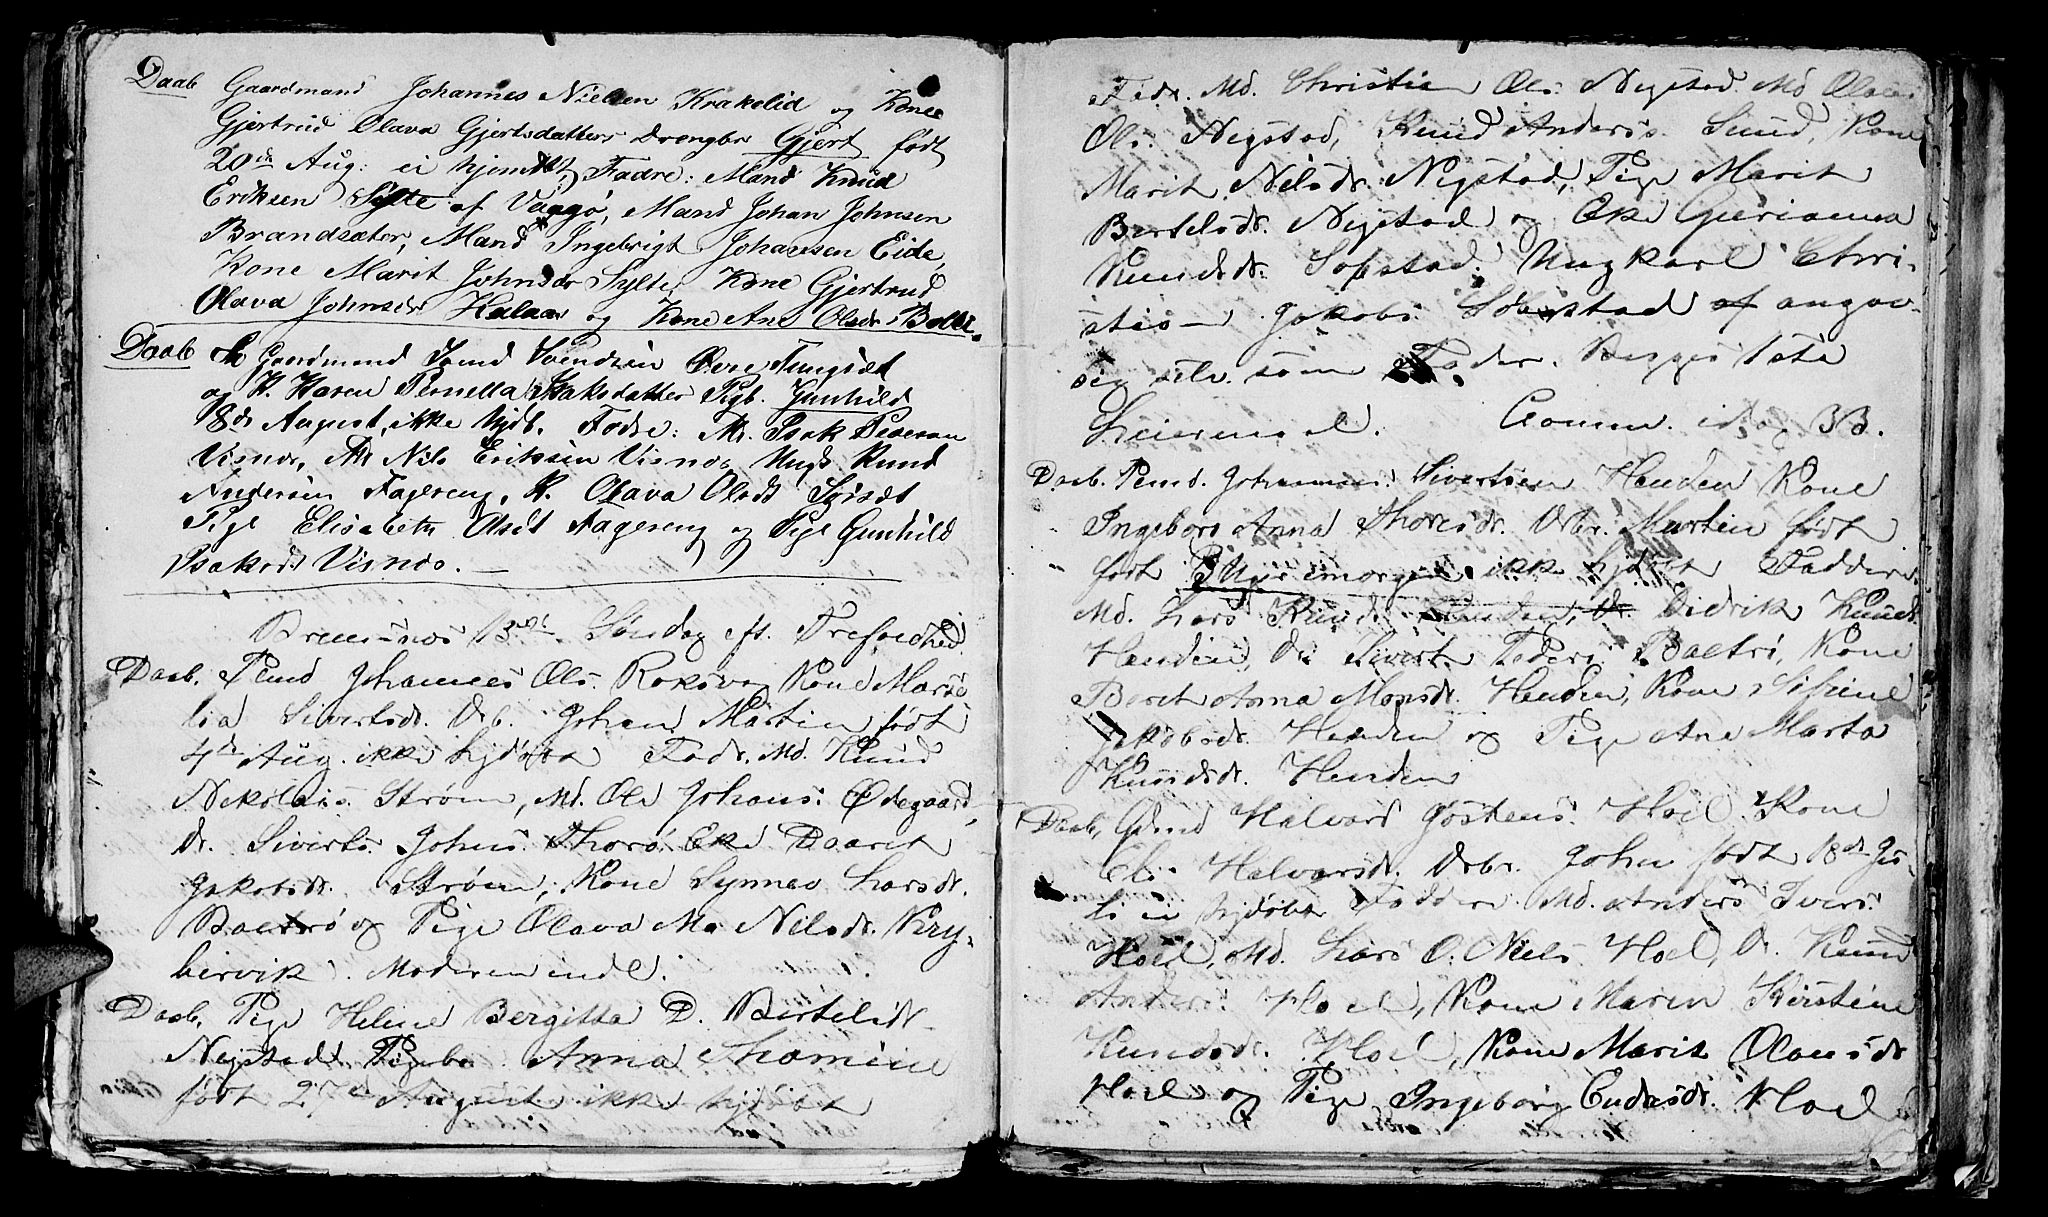 Daab Gaardmand Johannes Nielsen Krakelid og Kone
Gjertrud Olava Gjertsdatters Drengbr Gjert født
20de Aug: ei hjemdøbt, Fadre: Mand Knud
Eriksen Sylte af Vaagø, Mand Johan Johnsen
Brandsæter, Mand Ingebrigt Johansen Eide,
Kone Marit Johnsdr Sylte, Kone Gjertrud
Olava Johnsdr Halaas og Kone Ane Olsdr Bolli.
Daab Gaardmand Knud Svendsen Øvre Tungsæt
og K. Karen Pernella Isaksdatter Pigb. Gunhild
8de August, ikke hjdb. Fadre: M. Isak Pedersen
Visnes, M. Nils Eriksen Visnes Ungk Knud
Andersen Fagereng, K. Olava Olsdt
Pige Elisabeth Olsdt Fagereng og Pige Gunhild
Isaksdt Visnes.
Bremsnes 13de Søndag eft. Trefoldhed
Daab. Pmd Johannes Ols. Roksva Kone Marse
lia Sivertsdr. Drb. Johan Martin født
4de Aug. ikke hjdøbt Fadr. Md. Knud
Nekolais. Strøm, Md. Ole Johans. Ødegaard,
Dr. Siverts Johns. Thorø. Eke Daaret
Jakobsdr. Strøm, Kone Synnev Larsdr.
Baltrø og Pige Olava Ma Nilsdr. Kry-
bervik. Moderen indl.
Daab. Pige Helene Bergitta D. Bertelsdr.
Nygstad Pigebr. Anna Thomine
født 27de August ikke hjdøbt
Fadr. Md. Christian Ols. Negstad. Md Olaus
Ols. Negstad, Knud Anders. Sund, Kone
Marit Nilsdr. Nygstad, Pige Marit
Bertelsdr. Nygstad og Eke Gjerianna
Knudsdr. Sobstad. Ungkarl Chri-
stian Jakobs. Sobstad af angav
sig selv som Fader. Begges 1ste
Leiermaal. Comm. idag 33.
Daab. Pmd. Johannes Sivertsen Henden Kone
Ingeborg Anna Thoresdr. Drbr. Martin født
født ikke hjdøbt Faddere
Md. Lars Knuds. Didrik Knuds.
Henden, Dr Sivert Peders. Baltrø, Kone
Beret Anna Monsdr. Henden, Kone
Jakobsdr. Henden og Pige Ane Marta
Knudsdr. Henden
Daab. Gmd Halvard Jostens. Hoel Kone
Eli Halvarsdr. Drbr. John født 18de Ju-
li ei hjdøbt Faddere Md. Anders Ivers.
Hoel, Md. Lars O. Niels Hoel, Dr. Knud
Anders. Hoel, Kone Maren Kirstine
Knudsdr. Hoel, Kone Marit Olausdr
Hoel og Pige Ingeborg Endresdr. Hoel